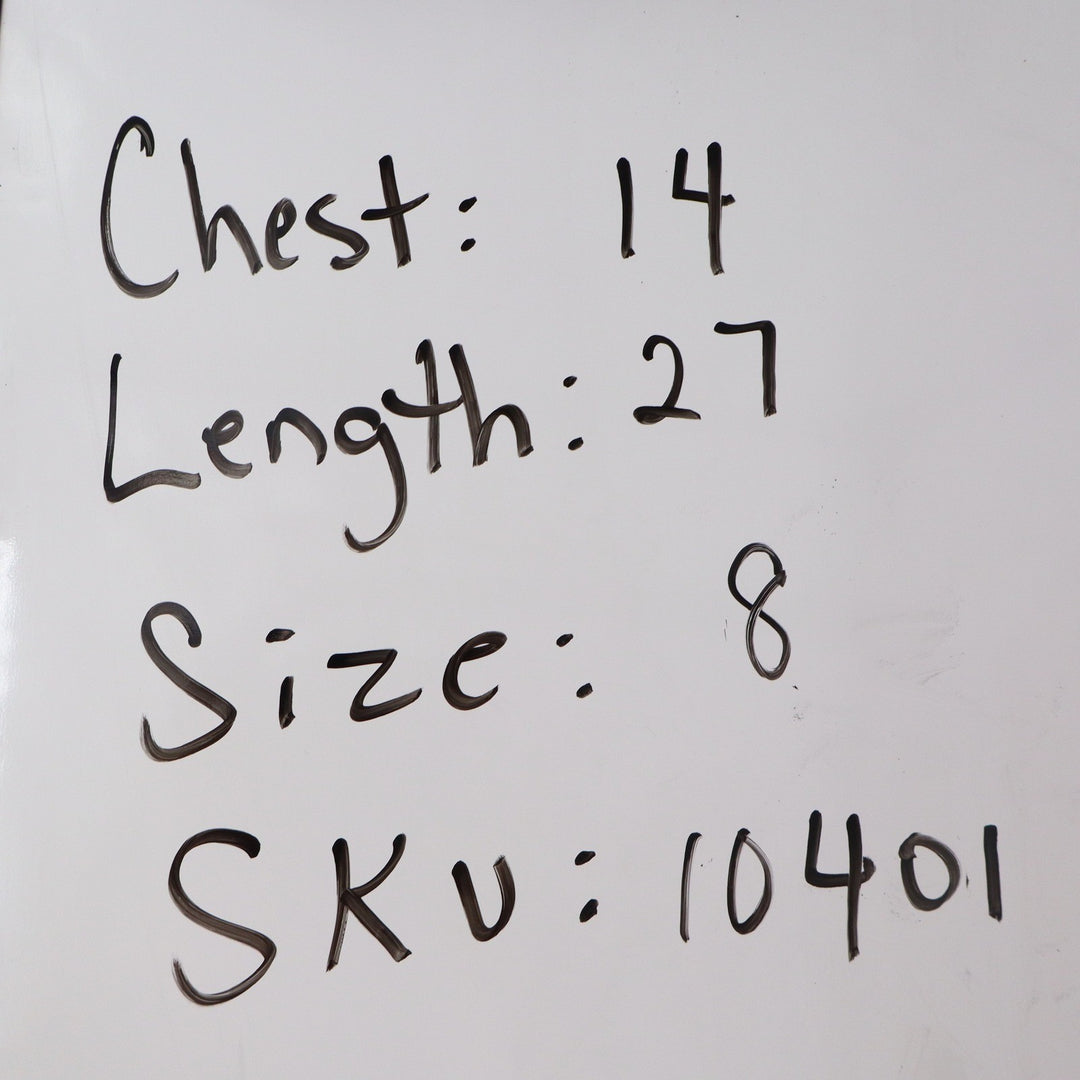 Chest: 14
Length: 27
Size: 8
SKU: 10401